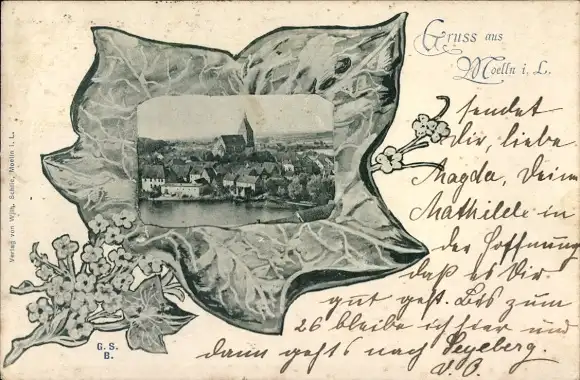 Gruss aus
Moelln i. L.
sendet
dir, liebe
Magda, Deine
Mathilde in
der Hoffnung
daß es Dir
gut geht. Bis zum
26 bleibe ich hier und
dann gehts nach Segeberg.
Verlag von Wilh. Moelln i. L.
G. S.
B.